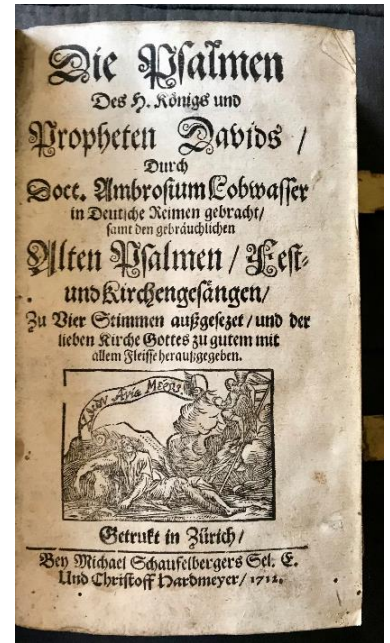 Die Psalmen
Des H. Königs und
Propheten Davids /
Durch
Doct. Ambrosium Lobwasser
in Deutsche Reimen gebracht/
samt den gebräuchlichen
Alten Psalmen / Fest-
und Kirchengesängen/
Zu Vier Stimmen außgesezet / und der
lieben Kirche Gottes zu gutem mit
allem Fleisse heraußgegeben.
Getrukt in Zürich /
Bey Michael Schaufelbergers Sel. E.
Und Christoff Hardmeyer / 1712.